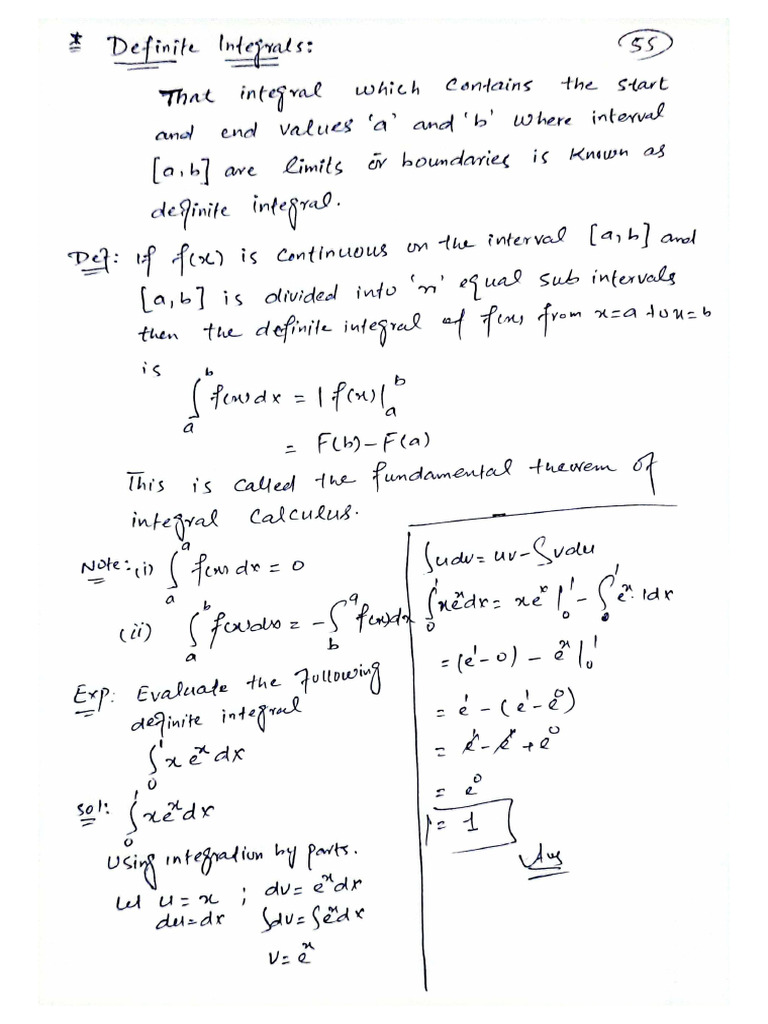 * Definite Integrals:
55
That integral which contains the start
and end values 'a' and 'b' where interval
[a,b] are limits or boundaries is known as
definite integral.
Def: if f(x) is continuous on the interval [a,b] and
[a,b] is divided into 'n' equal sub intervals
then the definite integral of f(x) from x=a to x=b
is
∫ₐᵇ f(x)dx = |f(x)|ₐᵇ
= F(b)-F(a)
This is called the fundamental theorem of
integral calculus.
Note: (i) ∫ₐᵃ f(x)dx = 0
(ii) ∫ₐᵇ f(x)dx = -∫_b^a f(x)dx
Exp: Evaluate the following
definite integral
∫₀¹ x eˣ dx
Sol: ∫₀¹ xeˣdx
Using integration by parts.
Let u = x ; dv = eˣdx
du=dx ∫dv=∫eˣdx
v=eˣ
∫udv = uv-∫vdu
∫₀¹ xeˣdx = xeˣ|₀¹ - ∫₀¹ eˣ.1dx
= (e¹-0) - eˣ|₀¹
= e¹ - (e¹-e⁰)
= e¹ - e¹ + e⁰
= e⁰
= 1
Ans